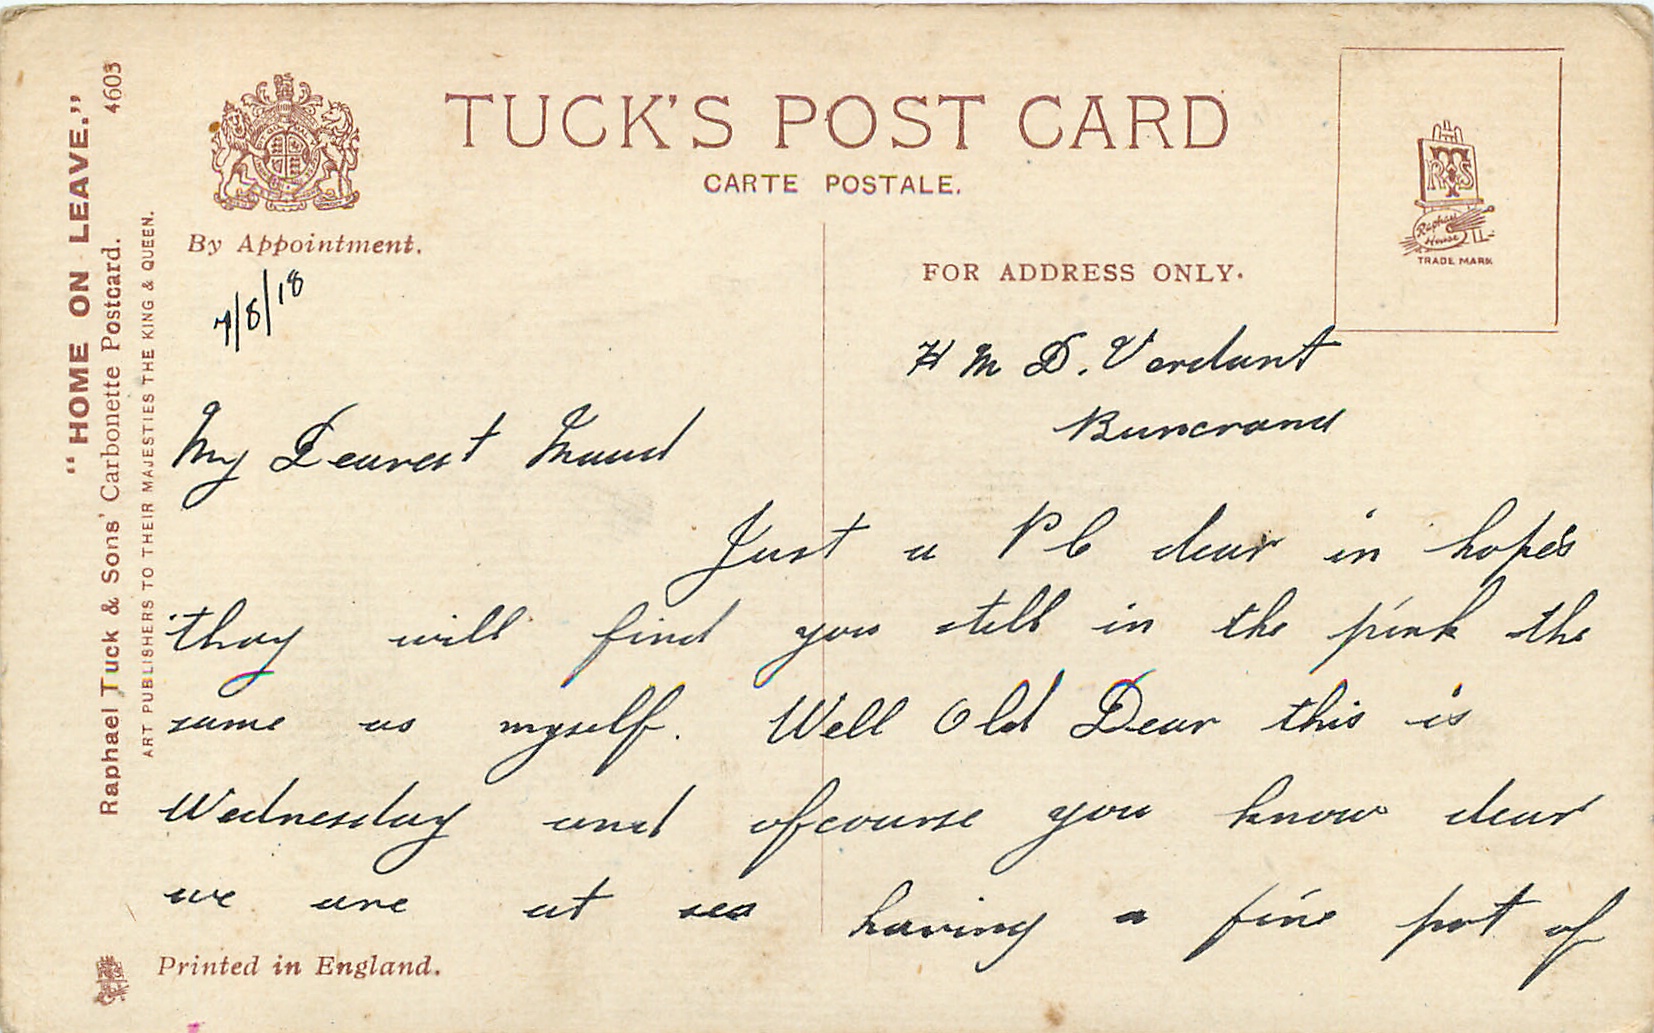 "HOME ON LEAVE."
4603
Raphael Tuck & Sons' Carbonette Postcard.
ART PUBLISHERS TO THEIR MAJESTIES THE KING & QUEEN.
By Appointment.
TUCK'S POST CARD
CARTE POSTALE.
FOR ADDRESS ONLY.
RTS
Raphael
House
TRADE MARK
7/8/18
H M D. Verdant
Buncrana
My Dearest Maud
Just a PC dear in hope's
they will find you still in the pink the
same as myself. Well Old Dear this is
Wednesday and ofcourse you know dear
we are at sea having a fine pot of
Printed in England.